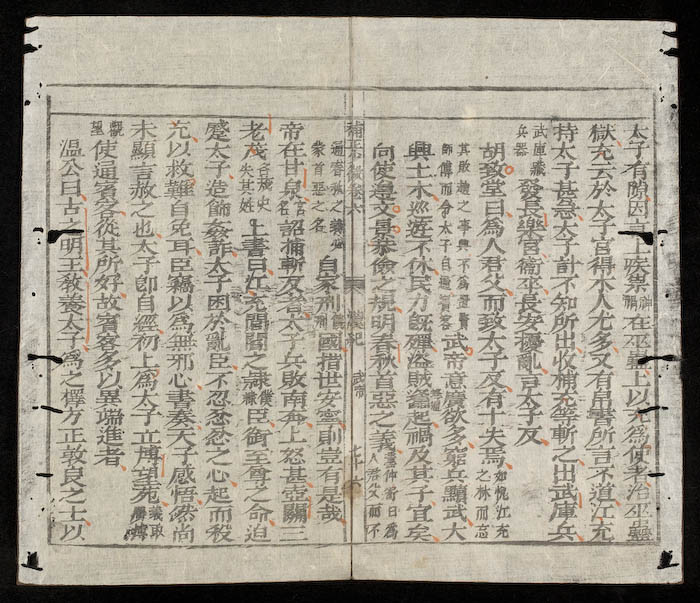 太子有隙因言上疾祟神禍在巫蠱上以充爲使者治巫蠱
獄充云於太子宫得木人尤多又有帛書所言不道江充
持太子甚急太子計不知所出收捕充等斬之出武庫兵
武庫藏兵器發長樂宫衛卒長安擾亂言太子反
胡致堂曰爲人君父而致太子反有十失焉如悦江充之怵而忘
其敗趙之事與不爲置賢師傅而令太子自通賓客武帝意廣欲多窮兵黷武大
興土木巡遊不休民力旣殫盗賊蠭起禍及其子宜矣
向使遵文景恭儉之規明春秋首惡之義董仲舒曰爲人君父而不
卷六 漢紀 武帝
通春秋之義必蒙首惡之名自家刑國指世安寧則豈有是哉
帝在甘泉宫名詔捕斬反者太子兵敗南奔上怒甚壺關三
老茂史失其姓上書曰江充閭閻之隷臣衘至尊之命迫
蹙太子造飾姦詐太子困於亂臣不忍忿忿之心起而殺
充以救難自免耳臣竊以爲無邪心書奏天子感悟然尚
未顯言赦之也太子即自經初上爲太子立博望苑義取廣博
觀望使通賓客從其所好故賓客多以異端進者
溫公曰古之明王教養太子爲之擇方正敦良之士以